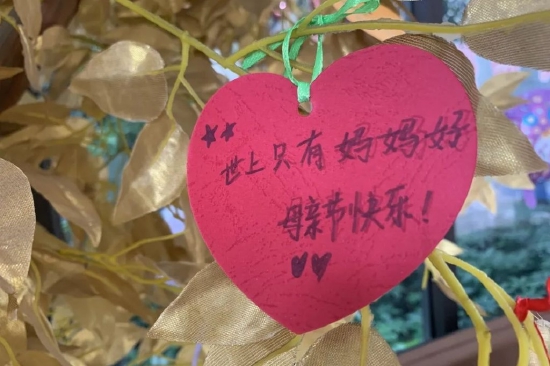 世上只有妈妈好
母亲节快乐!